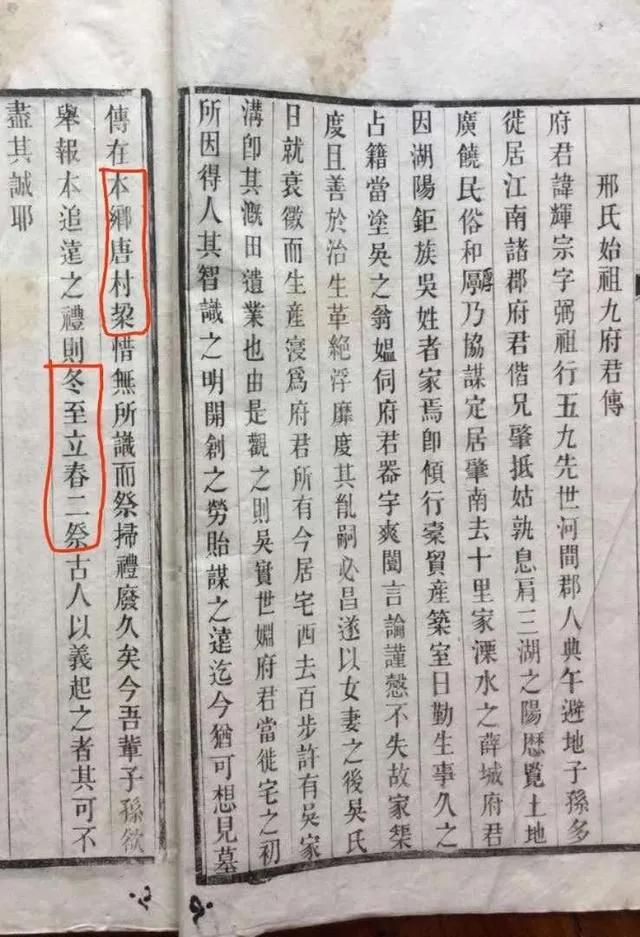 邢氏始祖九府君傳
府君諱輝宗字弼祖行五九先世河間郡人典午避地子孫多
徙居江南諸郡府君偕兄肇抵姑孰息肩三湖之陽歷覧土地
廣饒民俗和厚乃協謀定居肇南去十里家溧水之薛城府君
因湖陽鉅族吳姓者家焉即傾行橐貿產築室日勤生事久之
占籍當塗吳之翁媼伺府君器宇爽闓言論謹慤不失故家榘
度且善於治生革絶浮靡度其胤嗣必昌遂以女妻之後吳氏
日就衰微而生産寖爲府君所有今居宅西去百步許有吳家
溝卽其漑田遺業也由是觀之則吳實世婣府君當徙宅之初
所因得人其智識之明開創之勞貽謀之遠迄今猶可想見墓
傳在本鄉唐村梁惜無所識而祭掃禮廢久矣今吾輩子孫欲
舉報本追遠之禮則冬至立春二祭古人以義起之者其可不
盡其誠耶